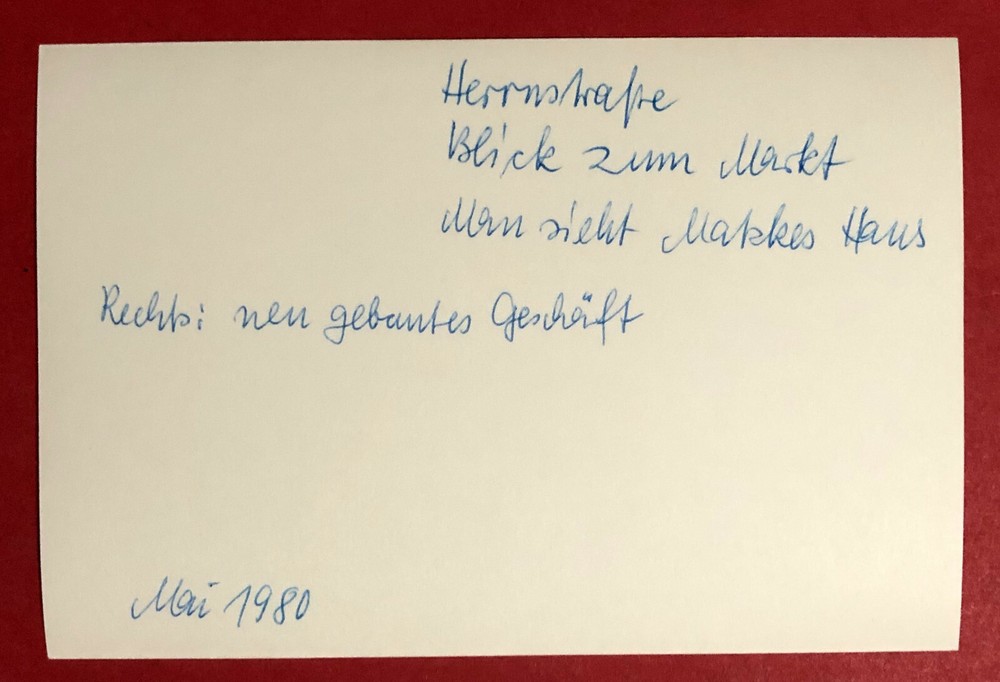 Herrnstraße
Blick zum Markt
Man sieht Matzkes Haus
Rechts: neu gebautes Geschäft
Mai 1980